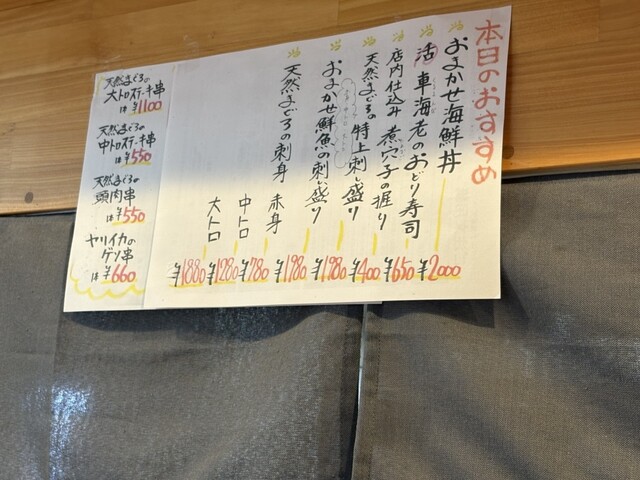 本日のおすすめ
おまかせ海鮮丼 ¥2000
活 車海老のおどり寿司 ¥650
店内仕込み 煮穴子の握り ¥400
天然まぐろの特上刺し盛り ¥1,980
おまかせ鮮魚の刺し盛り ¥1,980
天然まぐろの刺身 赤身 ¥780
中トロ ¥1280
大トロ ¥1880
天然まぐろの
大トロステーキ串
1本 ¥1100
天然まぐろの
中トロステーキ串
1本 ¥550
天然まぐろの
頭肉串
1本 ¥550
ヤリイカの
ゲソ串
1本 ¥660